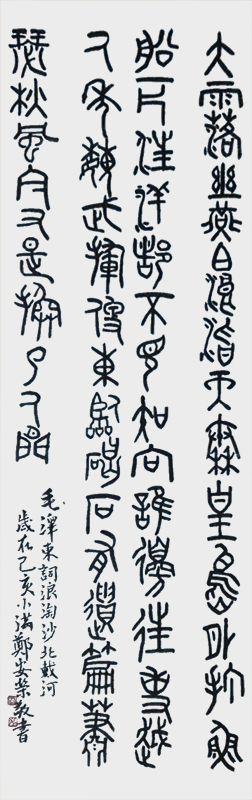 大雨落幽燕白浪滔天秦皇島外打魚
船一片汪洋都不見知向誰邊往事越
千年魏武揮鞭東臨碣石有遺篇蕭
瑟秋風今又是換了人間
毛澤東詞浪淘沙北戴河
歲在己亥小滿鄭安榮敬書